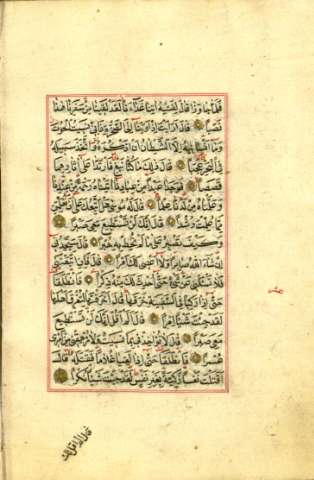 فَلَمَّا جَاوَزَا قَالَ لِفَتٰيهُ اٰتِنَا غَدَاءَنَا لَقَدْ لَقِينَا مِنْ سَفَرِنَا هٰذَا
نَصَبًا قَالَ اَرَاَيْتَ اِذْ اَوَيْنَا اِلَى الصَّخْرَةِ فَاِنِّي نَسِيتُ الْحُوتَ
وَمَا اَنْسَانِيهُ اِلَّا الشَّيْطَانُ اَنْ اَذْكُرَهُ وَاتَّخَذَ سَبِيلَهُ
فِي الْبَحْرِ عَجَبًا قَالَ ذٰلِكَ مَا كُنَّا نَبْغِ فَارْتَدَّا عَلٰى اٰثَارِهِمَا
قَصَصًا فَوَجَدَا عَبْدًا مِنْ عِبَادِنَا اٰتَيْنَاهُ رَحْمَةً مِنْ عِنْدِنَا
وَعَلَّمْنَاهُ مِنْ لَدُنَّا عِلْمًا قَالَ لَهُ مُوسٰى هَلْ اَتَّبِعُكَ عَلٰى اَنْ تُعَلِّمَنِ
مِمَّا عُلِّمْتَ رُشْدًا قَالَ اِنَّكَ لَنْ تَسْتَطِيعَ مَعِيَ صَبْرًا
وَكَيْفَ تَصْبِرُ عَلٰى مَا لَمْ تُحِطْ بِهِ خُبْرًا قَالَ سَتَجِدُنِي
اِنْ شَاءَ اللّٰهُ صَابِرًا وَلَا اَعْصِي لَكَ اَمْرًا قَالَ فَاِنِ اتَّبَعْتَنِي
فَلَا تَسْئَلْنِي عَنْ شَيْءٍ حَتّٰى اُحْدِثَ لَكَ مِنْهُ ذِكْرًا فَانْطَلَقَا
حَتّٰى اِذَا رَكِبَا فِي السَّفِينَةِ خَرَقَهَا قَالَ اَخَرَقْتَهَا لِتُغْرِقَ اَهْلَهَا
لَقَدْ جِئْتَ شَيْئًا اِمْرًا قَالَ اَلَمْ اَقُلْ اِنَّكَ لَنْ تَسْتَطِيعَ
مَعِيَ صَبْرًا قَالَ لَا تُؤَاخِذْنِي بِمَا نَسِيتُ وَلَا تُرْهِقْنِي مِنْ اَمْرِي
عُسْرًا فَانْطَلَقَا حَتّٰى اِذَا لَقِيَا غُلَامًا فَقَتَلَهُ قَالَ
اَقَتَلْتَ نَفْسًا زَكِيَّةً بِغَيْرِ نَفْسٍ لَقَدْ جِئْتَ شَيْئًا نُكْرًا
قال الم اقل لك